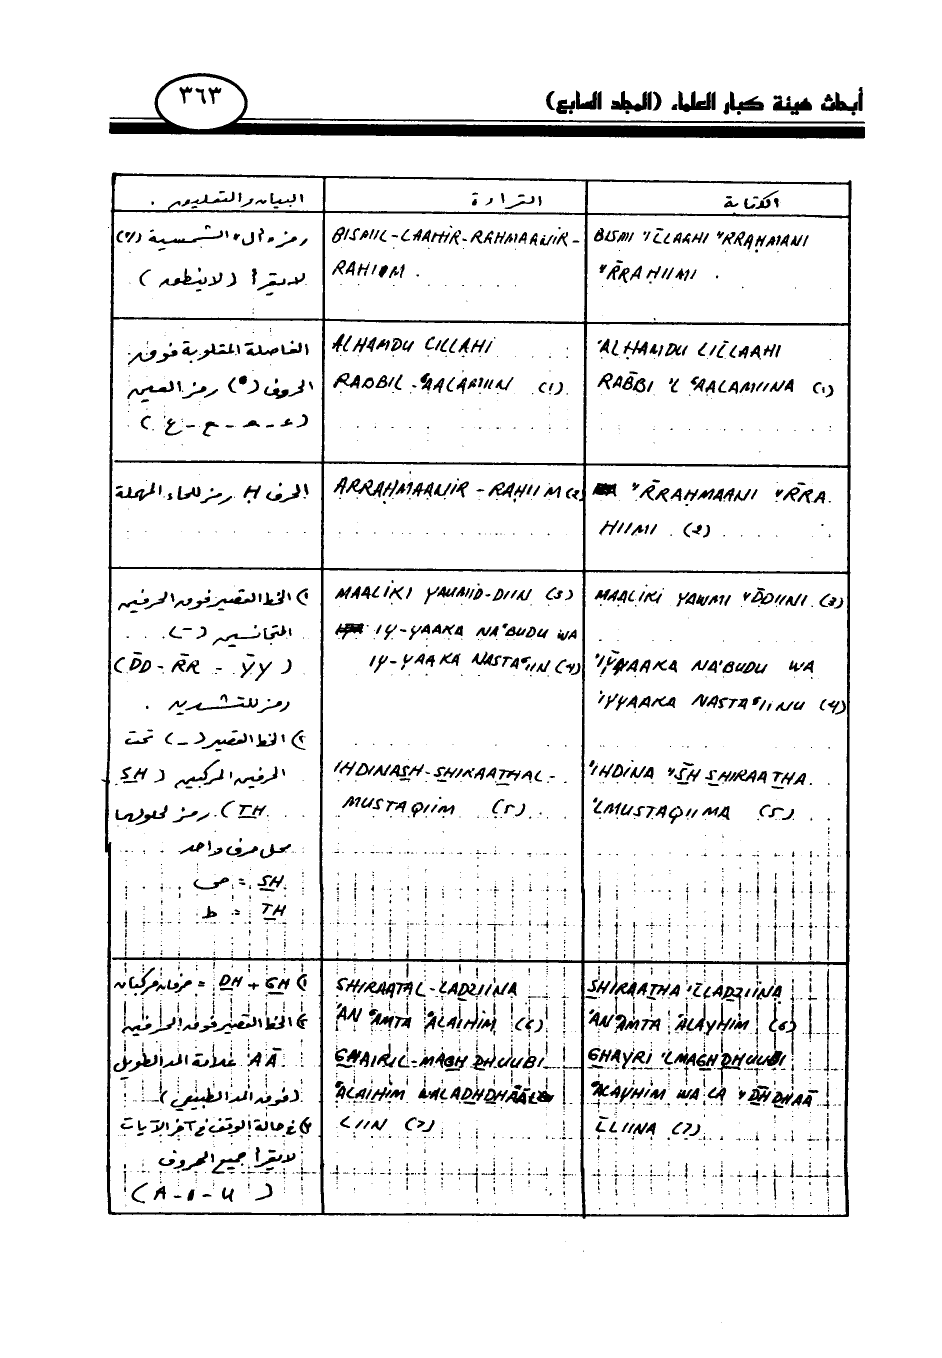 أبحاث هيئة كبار العلماء (المجلد السابع)
٣٦٣
الكتابة
القراءة
البيان والتعليق .
BISMI "ILLAAHI "RRAHMANI
"R̄RAHIIMI .
BISMIL-LAAHIR-RAHMAANIR-
RAHIIM .
رمز « أل » الشمسية (")
لا يقرأ (لا ينطق)
'ALHAMDU LIL̄LAAHI
RAB̄BI 'L 'AALAMIINA (1)
ALHAMDU LILLAHI
RABBIL-'AALAMIIN (1)
الفاصلة المقلوبة فوق
الحروف (') رمز العين
(ء - ه - ح - ع)
"R̄RAHMAANI "R̄RA
HIIMI (2)
ARRAHMAANIR-RAHIIM (2)
الحرف H رمز للحاء المهملة
MAALIKI YAWMI "D̄DIINI (3)
'IȲYAAKA NA'BUDU WA
'IYYAAKA NASTA'IINU (4)
'IHDINA "S̄H SHIRAATHA
'LMUSTAQIIMA (5)
MAALIKI YAUMID-DIIN (3)
IY-YAAKA NA'BUDU WA
IY-YAAKA NASTA'IIN (4)
IHDINASH-SHIRAATHAL-
MUSTAQIIM (5)
١) الخط القصير فوق الحرفين
المتجانسين (-)
(D̄D - R̄R - ȲY)
رمز للتشديد .
٢) الخط القصير (-) تحت
الحرفين المركبين (SH
TH) رمز لحلولهما
محل حرف واحد
SH = ص
TH = ط
SHIRAATHA 'L̄LADZIINA
'AN'AMTA 'ALAYHIM (6)
GHAYRI 'LMAGHDHUUBI
'ALAYHIM WA LA "D̄HDHAĀ
L̄LIINA (7)
SHIRAATAL-LADZIINA
'AN'AMTA 'ALAIHIM (6)
GHAIRIL-MAGHDHUUBI
'ALAIHIM WALADHDHAĀL
LIIN (7)
١) DH + GH = حرفان مركبان
٢) الخط القصير فوق الحرفين
AĀ علامة المد الطويل
(فوق المد الطبيعي)
٣) في حالة الوقف في آخر الآيات
لا يقرأ جميع الحروف
(A - I - U)